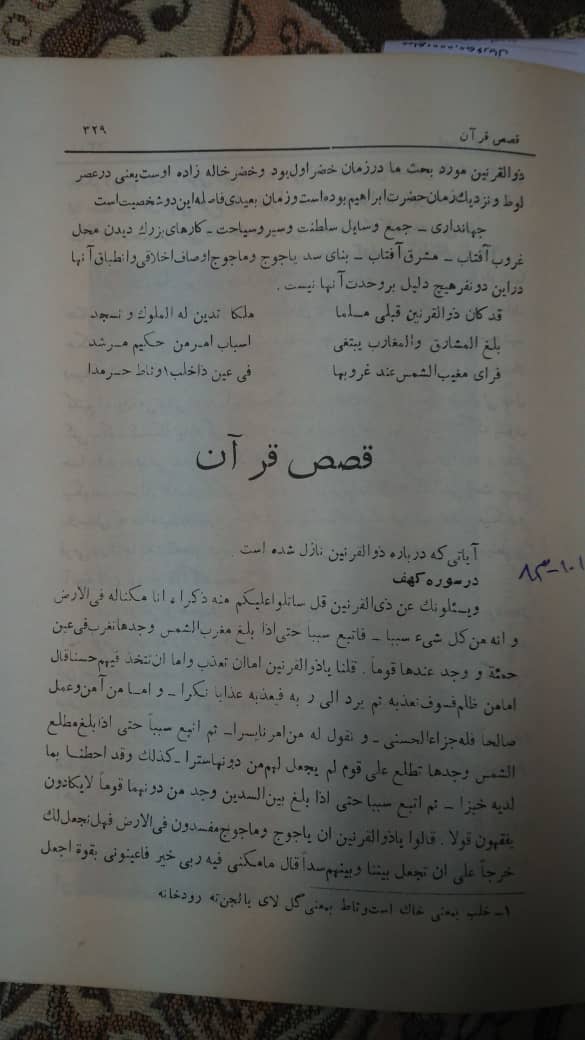 قصص قرآن
۳۲۹
ذوالقرنین مورد بحث ما درزمان خضر اول بود و خضر خاله زاده اوست یعنی درعصر
لوط و نزدیك زمان حضرت ابراهیم بوده است و زمان بعیدی فاصله این دو شخصیت است
جهانداری ـ جمع وسایل سلطنت وسیر وسیاحت ـ کارهای بزرك دیدن محل
غروب آفتاب ـ مشرق آفتاب ـ بنای سد یاجوج وماجوج اوصاف اخلاقی وانطباق آنها
دراین دونفرهیچ دلیل بروحدت آنها نیست .
قد کان ذوالقرنین قبلی مسلما ملکا تدین له الملوك و تسجد
بلغ المشارق والمغارب یبتغی اسباب امر من حکیم مرشد
فرای مغیب الشمس عند غروبها فی عین ذاخلب۱ وثاط حرمدا
قصص قرآن
آیاتی که درباره ذوالقرنین نازل شده است .
درسوره کهف
۱۰۱-۸۳
ویسئلونك عن ذی القرنین قل ساتلوا علیکم منه ذکراء انا مکناله فی الارض
و اتیناه من کل شیء سببا ـ فاتبع سببا حتی اذا بلغ مغرب الشمس وجدها تغرب فی عین
حمئة و وجد عندها قوماً . قلنا یاذوالقرنین اماان تعذب واما ان تتخذ فیهم حسناً قال
امامن ظلم فسوف نعذبه ثم یرد الی ر به فیعذبه عذابا نکرا ـ و امـا من آمن وعمل
صالحا فله جزاءالحسنی ـ و نقول له من امرنایسراـ ثم اتبع سبباً حتی اذا بلغ مطلع
الشمس وجدها تطلع علی قوم لم یجعل لهم من دونهاسترا ـ کذلك وقد احطنـا بما
لدیه خبرا ـ ثم اتبع سببا حتی اذا بلغ بین السدین وجد من دونهما قوماً لایکادون
یفقهون قولا . قالوا یاذوالقرنین ان یاجوج وماجوج مفسدون فی الارض فهل نجعل لك
خرجاً علی ان تجعل بیننا وبینهم سداً قال مامکنی فیه ربی خیر فاعینونی بقوة اجعل
۱ـ خلب بمعنی خاك است وثاط بمعنی گل لای یا لجن ته رودخانه